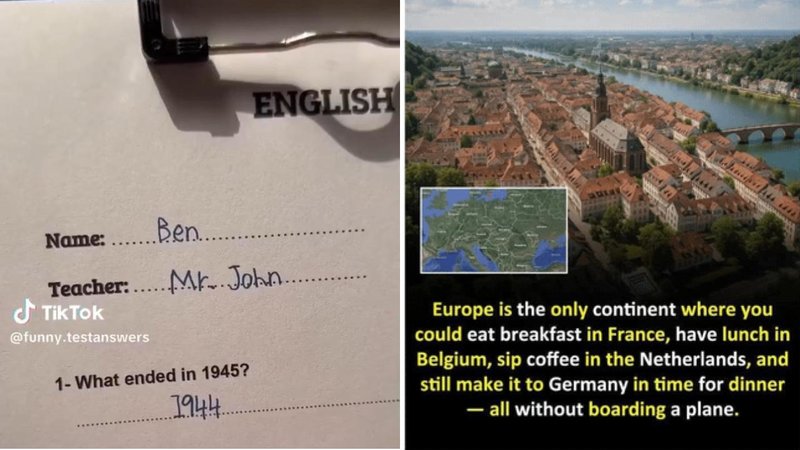 ENGLISH
Name: Ben
Teacher: Mr. John
TikTok
@funny.testanswers
1- What ended in 1945?
1944
Europe is the only continent where you
could eat breakfast in France, have lunch in
Belgium, sip coffee in the Netherlands, and
still make it to Germany in time for dinner
— all without boarding a plane.